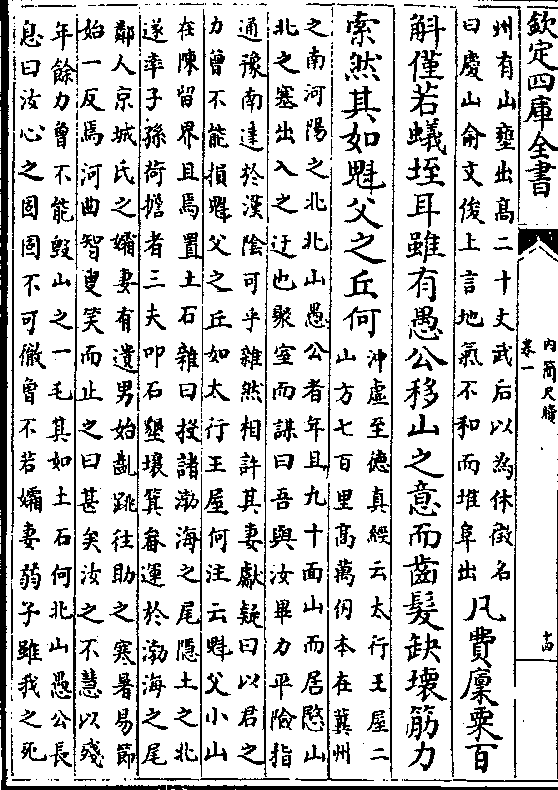 欽定四庫全書
内簡尺牘
卷一
十四
州有山壅出髙二十丈武后以為休徵名
曰慶山俞文俊上言地氣不和而堆阜出
凡費廩粟百
斛僅若蟻垤耳雖有愚公移山之意而齒髮缺壞筋力
索然其如魁父之丘何
沖虚至德真經云太行王屋二
山方七百里髙萬仭本在冀州
之南河陽之北北山愚公者年且九十面山而居愍山
北之塞出入之迂也聚室而謀曰吾與汝畢力平險指
通豫南達於漢陰可乎雜然相許其妻獻疑曰以君之
力曾不能損魁父之丘如太行王屋何注云魁父小山
在陳留界且焉置土石雜曰投諸渤海之尾隱土之北
遂率子孫荷擔者三夫叩石墾壤箕畚運於渤海之尾
鄰人京城氏之孀妻有遺男始齓跳往助之寒暑易節
始一反焉河曲智叟笑而止之曰甚矣汝之不慧以殘
年餘力曾不能毁山之一毛其如土石何北山愚公長
息曰汝心之固固不可徹曾不若孀妻弱子雖我之死